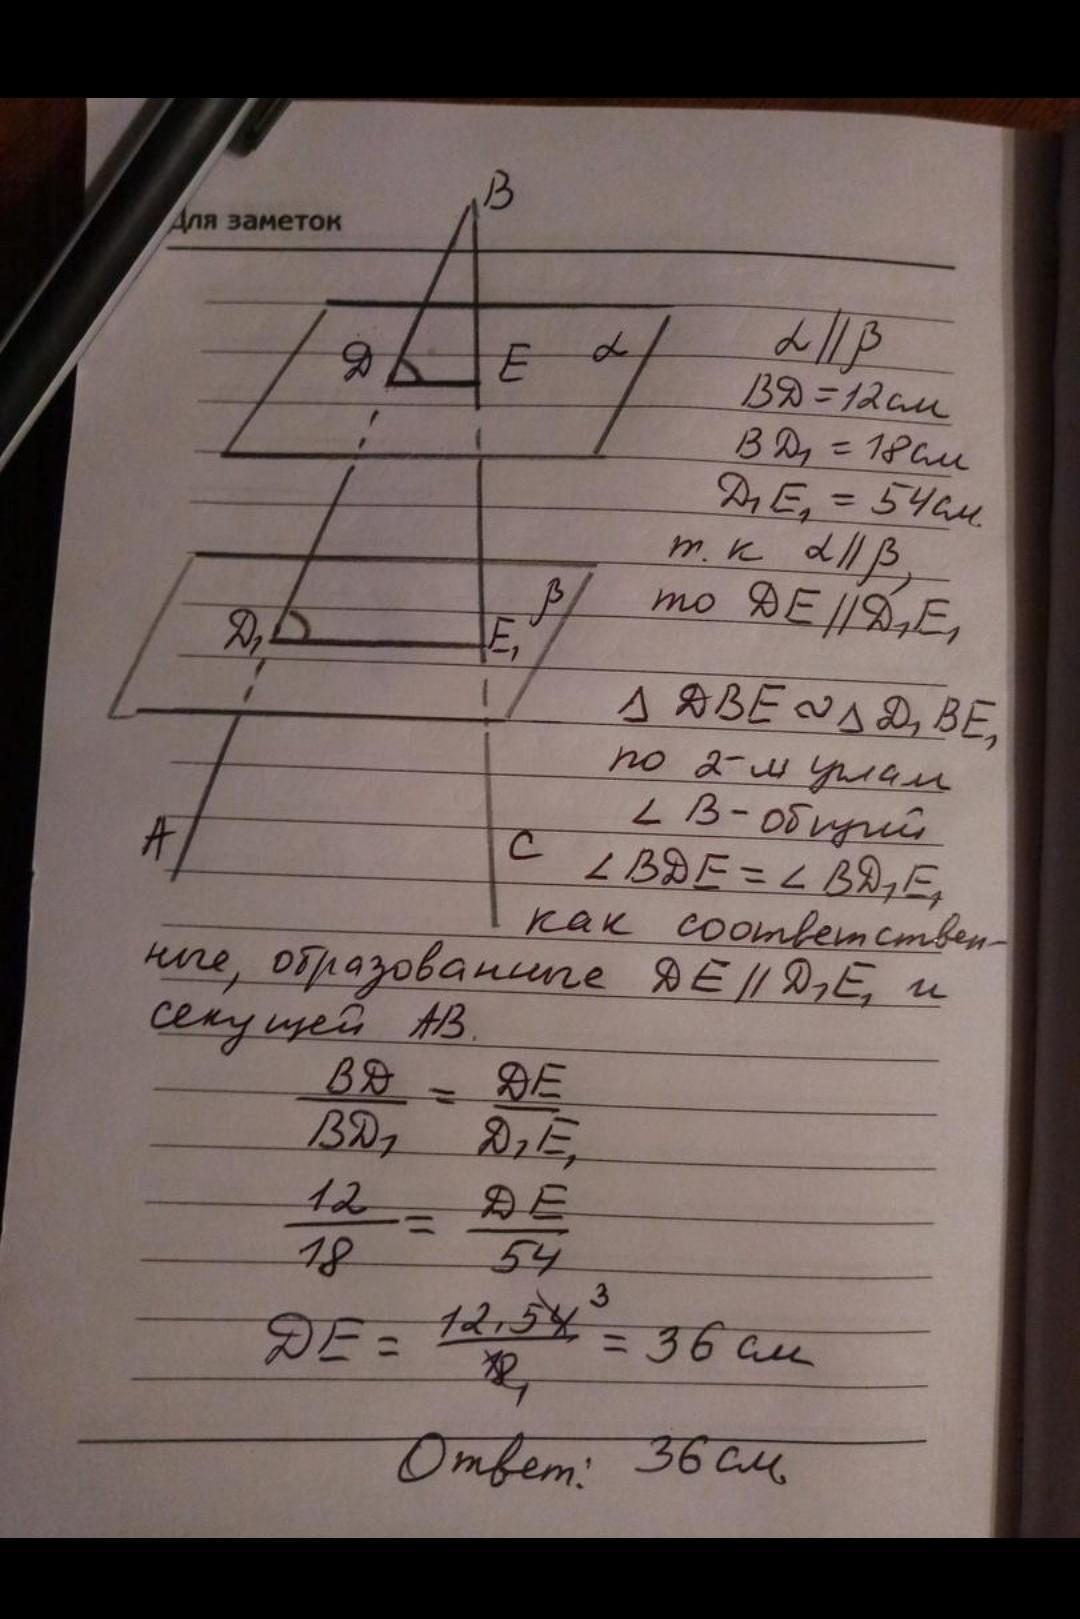 Для заметок
B
D E α
α∥β
BD=12см
BD₁=18см
D₁E₁=54см.
т.к α∥β,
то DE∥D₁E₁
D₁ E₁ β
△DBE∾△D₁BE₁
по 2-м углам
∠B-общий
A C
∠BDE=∠BD₁E₁
как соответствен-
ные, образованные DE∥D₁E₁ и
секущей AB.
BD/BD₁ = DE/D₁E₁
12/18 = DE/54
DE = 12.54 3/18 1 = 36 см
Ответ: 36см.